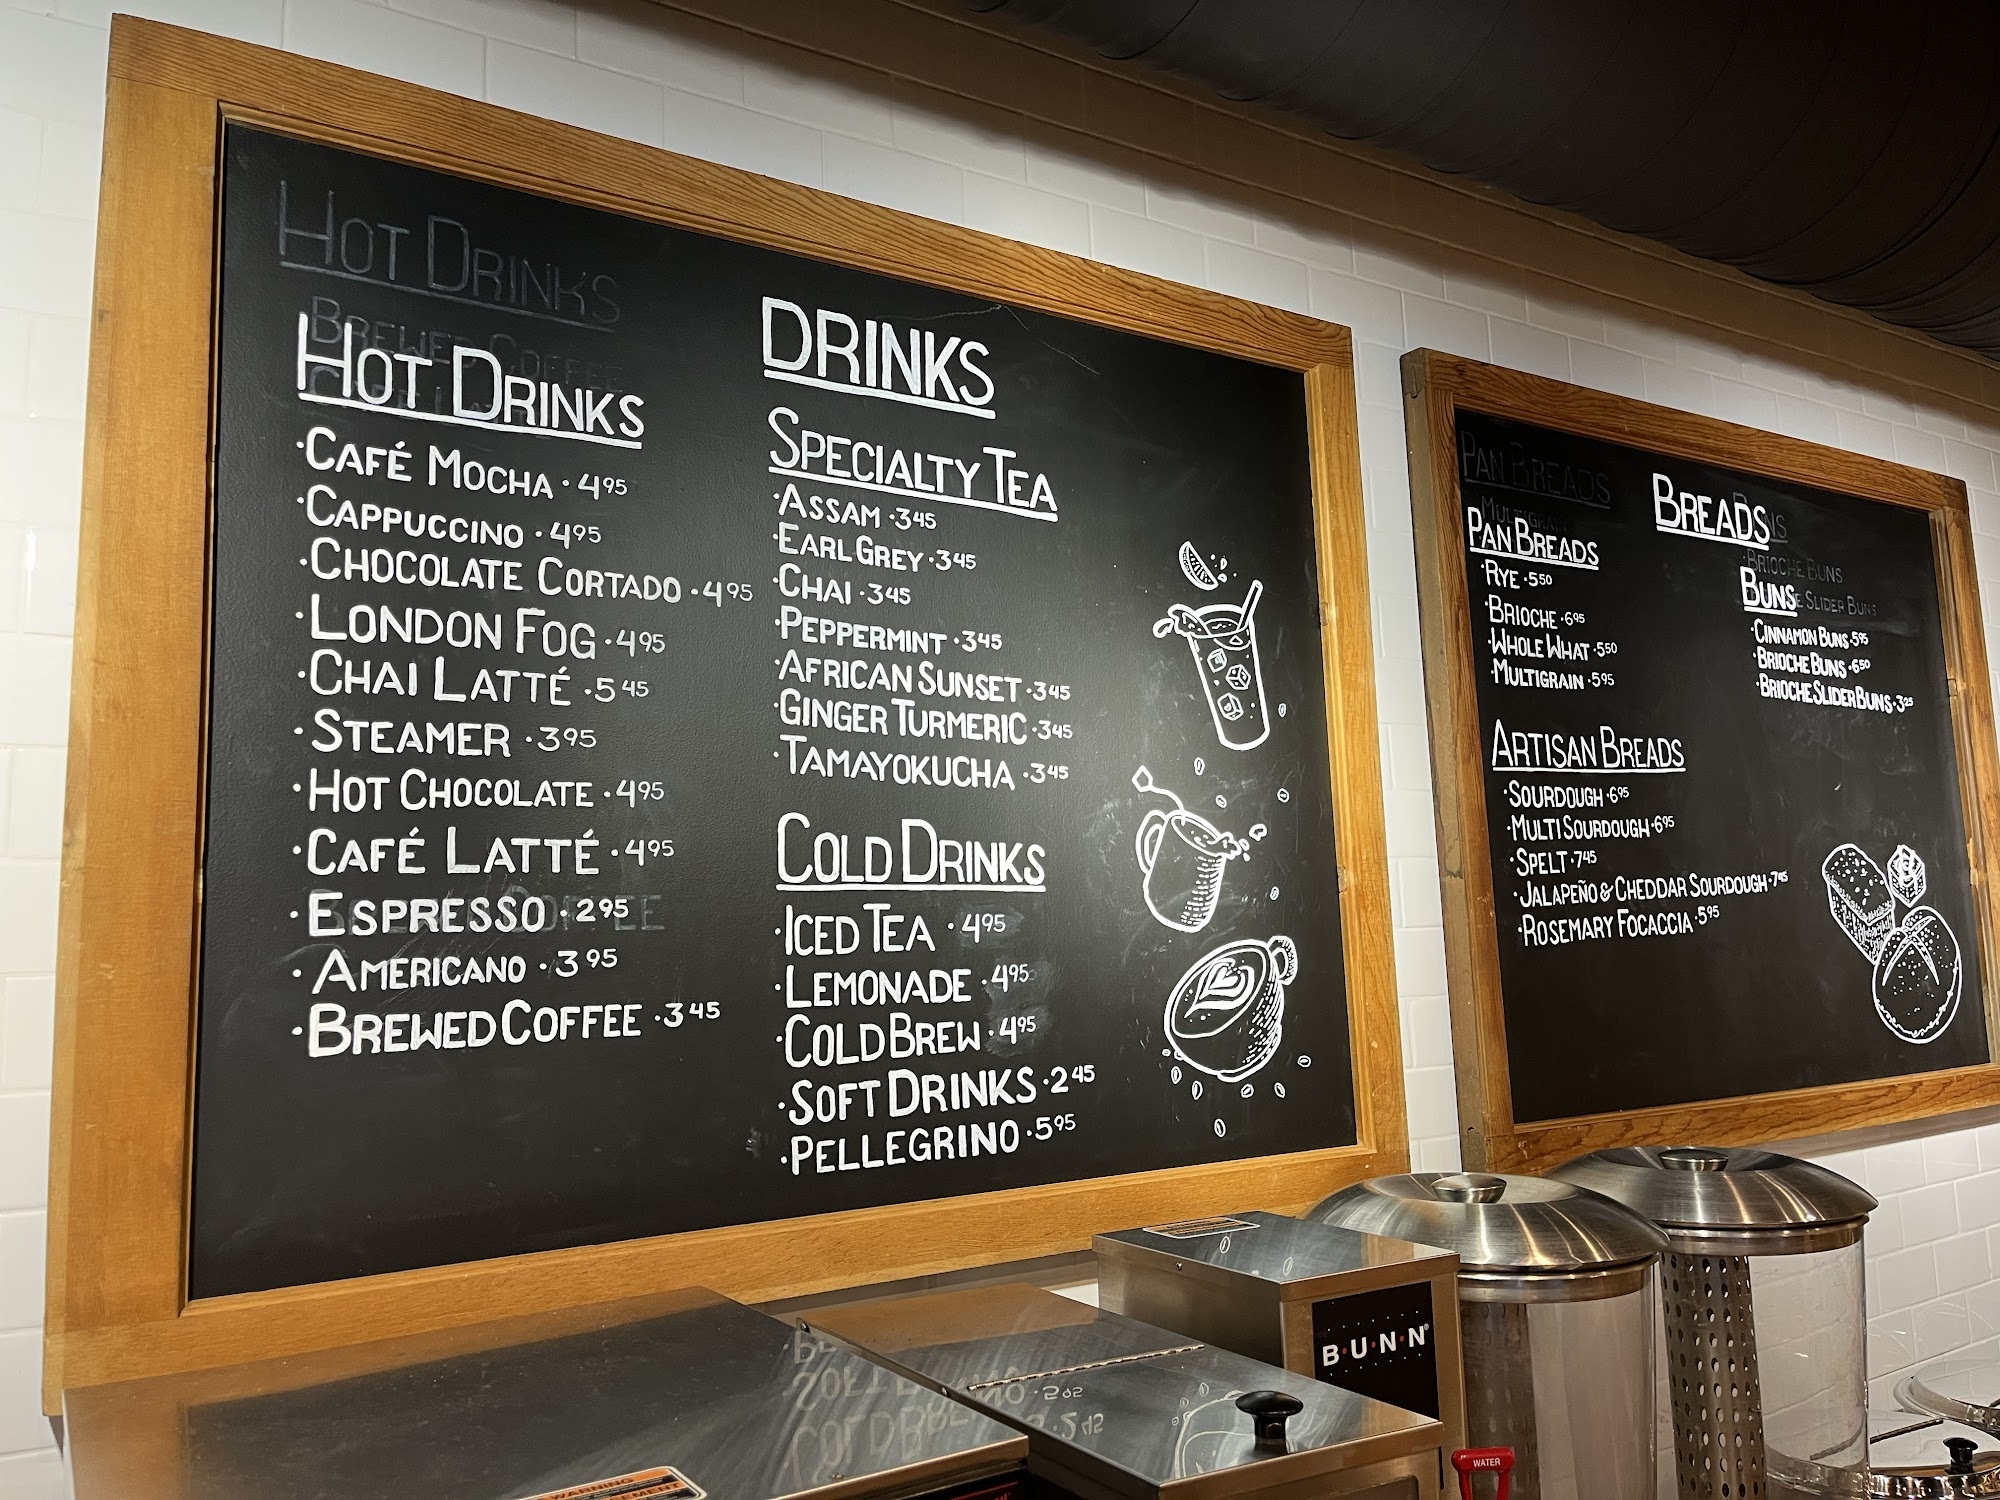 HOT DRINKS
BREWED COFFEE
HOT DRINKS
·CAFÉ MOCHA · 4 95
·CAPPUCCINO · 4 95
·CHOCOLATE CORTADO · 4 95
·LONDON FOG · 4 95
·CHAI LATTÉ · 5 45
·STEAMER · 3 95
·HOT CHOCOLATE · 4 95
·CAFÉ LATTÉ · 4 95
·ESPRESSO · 2 95
·AMERICANO · 3 95
·BREWED COFFEE · 3 45
DRINKS
SPECIALTY TEA
·ASSAM · 3 45
·EARL GREY · 3 45
·CHAI · 3 45
·PEPPERMINT · 3 45
·AFRICAN SUNSET · 3 45
·GINGER TURMERIC · 3 45
·TAMAYOKUCHA · 3 45
COLD DRINKS
·ICED TEA · 4 95
·LEMONADE · 4 95
·COLD BREW · 4 95
·SOFT DRINKS · 2 45
·PELLEGRINO · 5 95
PAN BREADS
MULTIGRAIN
BREADS
PAN BREADS
·RYE · 5 50
·BRIOCHE · 6 95
·WHOLE WHAT · 5 50
·MULTIGRAIN · 5 95
·BRIOCHE BUNS
SLIDER BUNS
BUNS
·CINNAMON BUNS · 5 95
·BRIOCHE BUNS · 6 50
·BRIOCHE SLIDER BUNS · 3 25
ARTISAN BREADS
·SOURDOUGH · 6 95
·MULTI SOURDOUGH · 6 95
·SPELT · 7 45
·JALAPEÑO & CHEDDAR SOURDOUGH · 7 45
·ROSEMARY FOCACCIA · 5 95
B·U·N·N®
WATER
WARNING